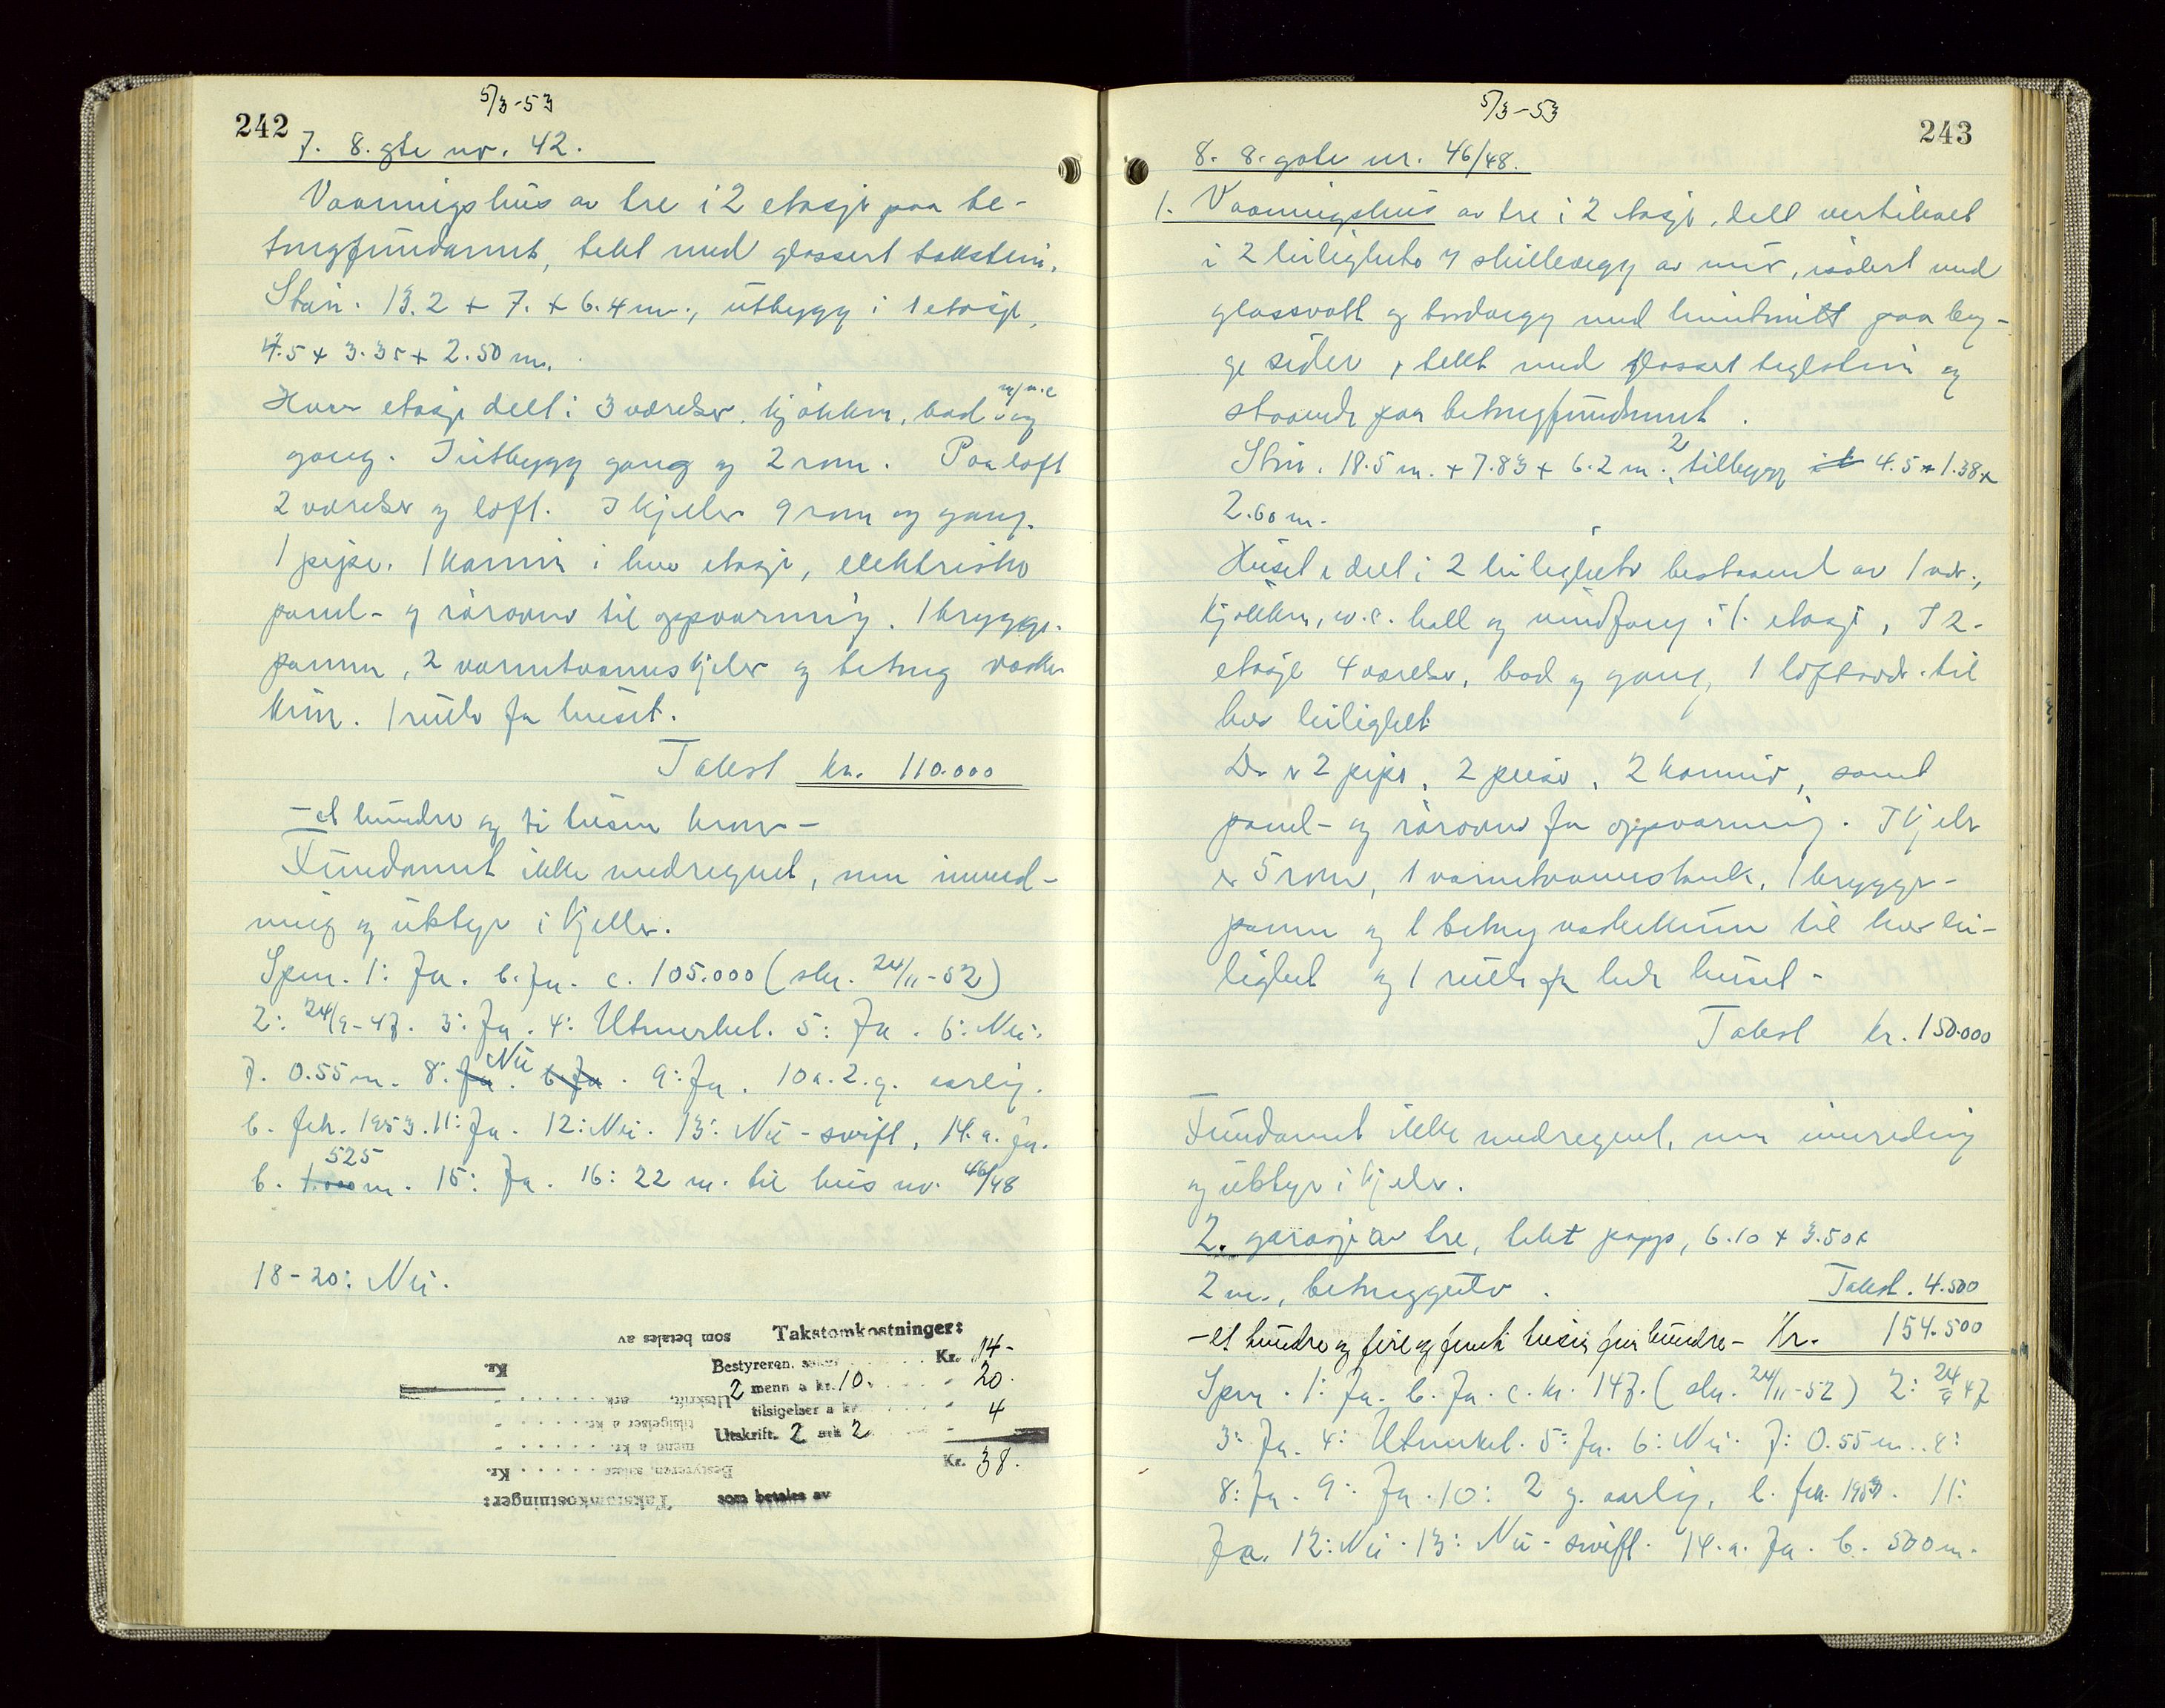 242
5/3-53
7. 8. gte nr. 42.
Vaaningshus av tre i 2 etasje paa be-
tongfundament, tekt med glassert takstein.
Stør. 13.2 + 7. + 6.4 m., utbygg i 1 etasje,
4.5 + 3.35 + 2.50 m.
Hver etasje delt i 3 værelser, kjøkken, bad m/w.c og
gang. I utbygg gang og 2 rom. Paa loft
2 værelser og loft. I kjeller 9 rom og gang.
1 pipe. 1 kamin i hver etasje, elektriske
panel- og rørovner til oppvarming. 1 brygge-
panne, 2 varmtvannskjeler og betong vaske-
kum. 1 rute fra huset.
Takst kr. 110.000
- et hundre og ti tusen kroner -
Fundament ikke medregnet, men innred-
ning og utstyr i kjeller.
Spm. 1: Ja. b. Ja. c. 105.000 (skr. 24/11-52)
2: 24/9-47. 3: Ja. 4: Utmerket. 5: Ja. 6: Nei.
7. 0.55 m. 8: Ja Nei. b. Ja. 9: Ja. 10 a. 2 g. aarlig.
b. feb. 1953. 11: Ja. 12: Nei. 13: Nei - swift. 14. a. Ja.
b. 1.000 525 m. 15: Ja. 16: 22 m. til hus nr. 46/48
18-20: Nei.
Takstomkostninger:
Bestyreren, Kr. 14-
2 menn a kr. 10. 20.
tilsigelser a kr. 4
Utskrift. 2 ark 2
Kr. 38.
som betales av
Takstomkostninger:
Bestyreren, Kr.
menn a kr.
tilsigelser a kr.
Utskrift, ark
Kr.
som betales av
5/3-53
243
8. 8. gate nr. 46/48.
1. Vaaningshus av tre i 2 etasje, delt vertikalt
i 2 leiligheter m skillevegg av mur, isolert med
glassvatt og bordvegg med huntonitt paa beg-
ge sider, tekt med glassert teglstein og
staaende paa betongfundament.
Stør. 18.5 m. + 7.83 + 6.2 m. 2 tilbygg 4.5 + 1.38 x
2.60 m.
Huset er delt i 2 leiligheter bestaaende av 1 vær.,
kjøkken, w.c. hall og vindfang i 1. etasje, I 2.
etasje 4 værelser, bad og gang, 1 loftsvær. til
hver leilighet
Der er 2 piper, 2 peiser, 2 kaminer, samt
panel- og rørovner for oppvarming. I kjeller
er 5 rom, 1 varmtvannstank, 1 brygge-
panne og 1 betong vaskekum til hver lei-
lighet og 1 rute fra hele huset -
Takst kr. 150.000
Fundament ikke medregnet, men innredning
og utstyr i kjeller.
2. garasje av tre, tekt papp, 6.10 + 3.50 x
2 m., betonggulv. Takst. 4.500
- et hundre og fire og femti tusen fem hundre - Kr. 154.500
Spm. 1: Ja. b. Ja. c. kr. 147. (skr. 24/11-52) 2: 24/9 47
3: Ja. 4: Utmerket. 5: Ja. 6: Nei. 7: 0.55 m. 8:
8: Ja. 9: Ja. 10: 2 g. aarlig, b. feb. 1953. 11:
Ja. 12: Nei. 13: Nei - swift. 14. a. Ja. b. 500 m.